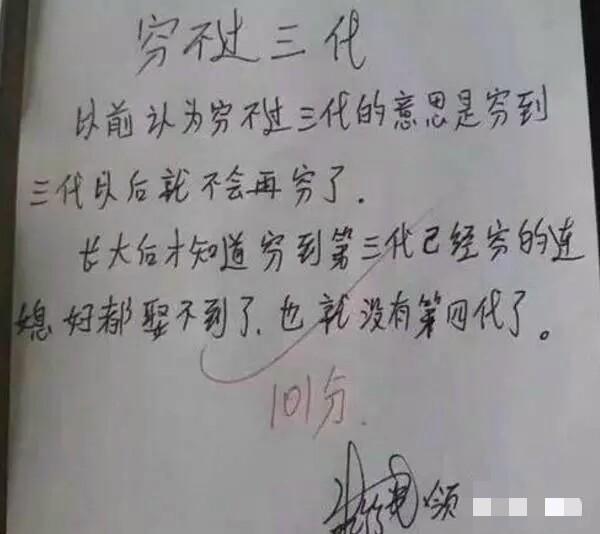 穷不过三代
以前认为穷不过三代的意思是穷到
三代以后就不会再穷了.
长大后才知道穷到第三代已经穷的连
媳妇都娶不到了.也就没有第四代了。
101分.